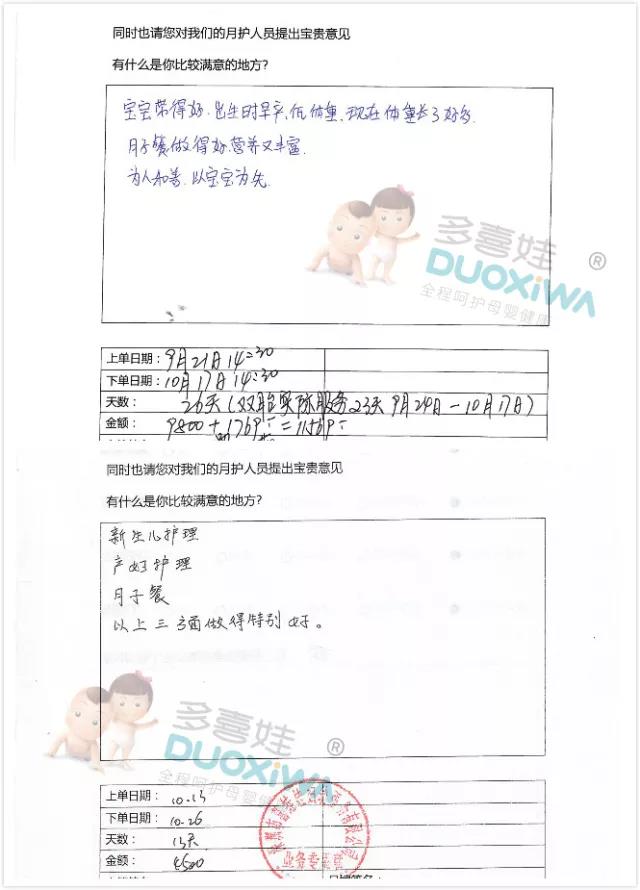 同时也请您对我们的月护人员提出宝贵意见
有什么是你比较满意的地方?
宝宝带得好.出生时早产,低体重,现在体重长了好多.
月子餐做得好.营养又丰富.
为人和善.以宝宝为先.
多喜娃 ®
DUOXiWA
全程呵护母婴健康
上单日期: 9月21日14:30
下单日期: 10月17日14:30
天数: 26天(双胞实际服务23天 9月24日-10月17日)
金额: 9800+1769=11569
同时也请您对我们的月护人员提出宝贵意见
有什么是你比较满意的地方?
新生儿护理
产妇护理
月子餐
以上三方面做得特别好。
多喜娃 ®
DUOXiWA
全程呵护母婴健康
上单日期: 10.13
下单日期: 10.26
天数: 13天
金额: 4500